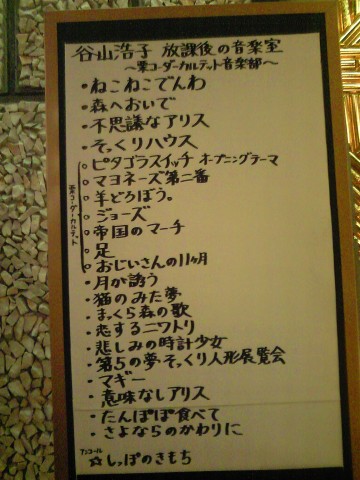 谷山浩子 放課後の音楽室
～栗コーダーカルテット音楽部～
・ねこねこでんわ
・森へおいで
・不思議なアリス
・そっくりハウス
・ピタゴラスイッチ オープニングテーマ
・マヨネーズ第二番
・羊どろぼう。
・ジョーズ
・帝国のマーチ
・足
・おじいさんの11ヶ月
栗コーダーカルテット
・月が誘う
・猫のみた夢
・まっくら森の歌
・恋するニワトリ
・悲しみの時計少女
・第5の夢 そっくり人形展覧会
・マギー
・意味なしアリス
・たんぽぽ食べて
・さよならのかわりに
アンコール
☆しっぽのきもち